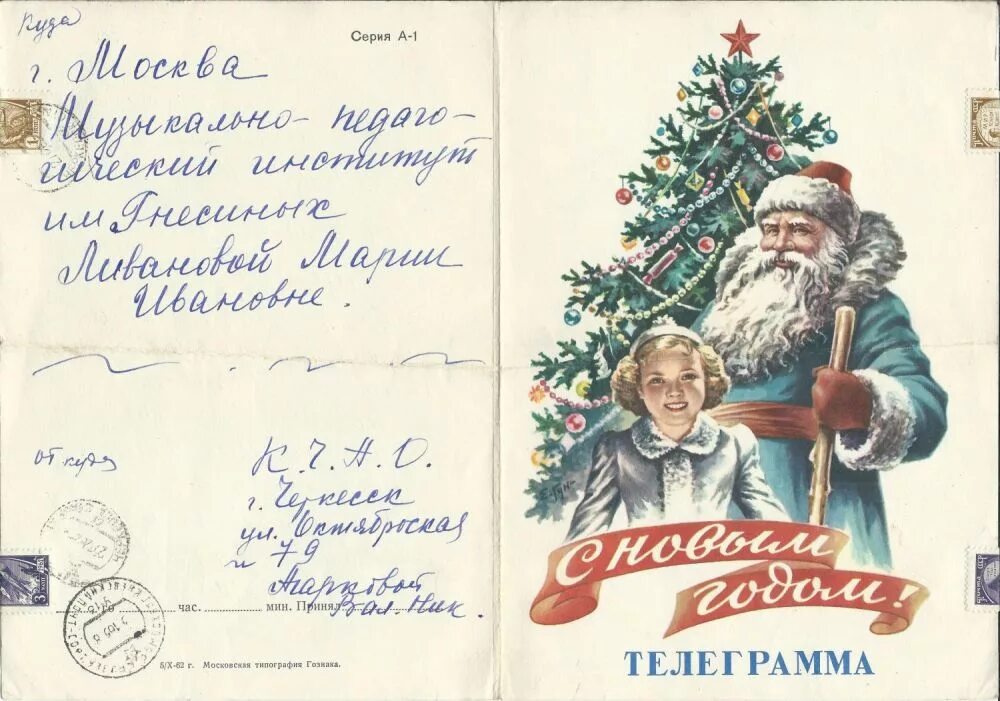 Куда
Серия А-1
г. Москва
Музыкально-педаго-
гический институт
им Гнесиных
Ливановой Марии
Ивановне.
от куда
К. Ч. А. О.
г. Черкесск
ул. Октябрьская
79
Марковой
Вал. Ник.
час. мин. Принял
5/X-62 г. Московская типография Гознака.
С новым
годом!
ТЕЛЕГРАММА